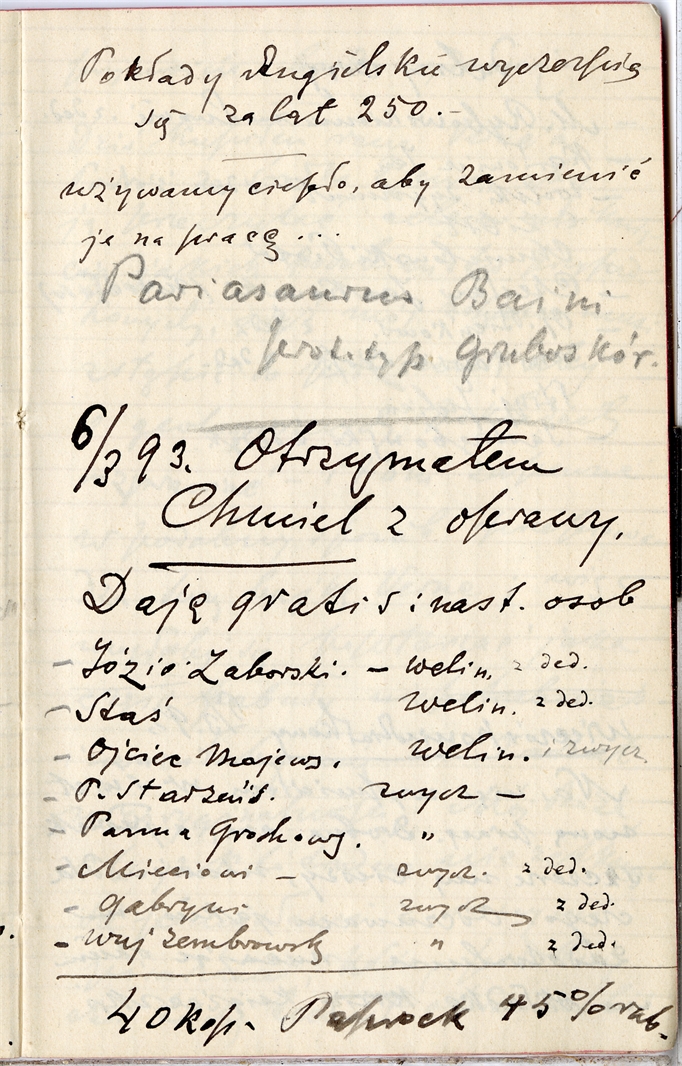 Pokłady Angielskie wyczerpią
się za lat 250.-
używamy ciepło, aby zamienić
je na pracę...
Pariasaurus Baini
prototyp. Gruboskór.
6/3 93. Otrzymałem
Chmiel z oprawy.
Daję gratis: nast. osob
- Józio Zaborski. - welin. z ded.
- Staś welin. z ded.
- Ojciec Majews. welin. i zwycz.
- P. Starzeńs. zwycz -
- Panna Grochows. "
- Mieciowi - zwycz. z ded.
- Gabryni zwycz z ded.
- Wuj Zembrowski " z ded.
40 kop. Paprock 45% rab.